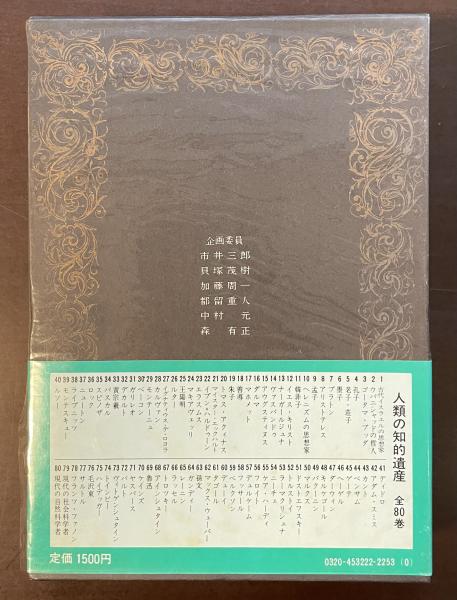 企画委員
市井三郎
貝塚茂樹
加藤周一
都留重人
中村元
森有正
人類の知的遺産 全80巻
1 古代イスラエルの思想家
2 ウパニシャッドの哲人
3 ゴータマ・ブッダ
4 孔子
5 老子・荘子
6 墨子
7 プラトン
8 アリストテレス
9 孟子
10 ヘレニズムの思想家
11 韓非子
12 イエス・キリスト
13 ナーガールジュナ
14 ヴァスバンドゥ
15 アウグスティヌス
16 ダルマ
17 マホメット
18 善導
19 朱子
20 トマス・アクィナス
21 マイスター・エックハルト
22 イブン=ハルドゥーン
23 エラスムス
24 マキアヴェッリ
25 王陽明
26 ルター
27 イグナティウス・デ・ロヨラ
28 カルヴァン
29 モンテーニュ
30 ベーコン
31 ガリレオ
32 デカルト
33 黄宗羲
34 パスカル
35 スピノザ
36 ロック
37 ニュートン
38 ライプニッツ
39 モンテスキュー
40 ルソー
41 ディドロ
42 アダム・スミス
43 カント
44 ベンサム
45 ゲーテ
46 ヘーゲル
47 ダーウィン
48 キルケゴール
49 バクーニン
50 マルクス
51 ドストエフスキー
52 トルストイ
53 ラーマクリシュナ
54 ニーチェ
55 ケア・ハーディ
56 フロイト
57 デュルケーム
58 フッサール
59 ベルクソン
60 デューイ
61 タゴール
62 マックス・ウェーバー
63 孫文
64 ガンディー
65 レーニン
66 ラッセル
67 トロツキー
68 アインシュタイン
69 魯迅
70 ケインズ
71 ヤスパース
72
73 ヴィトゲンシュタイン
74 トインビー
75 ハイデッガー
76 毛沢東
77 サルトル
78 フランツ・ファノン
79 現代の社会科学者
80 現代の自然科学者
定価 1500円
0320-453222-2253 (0)